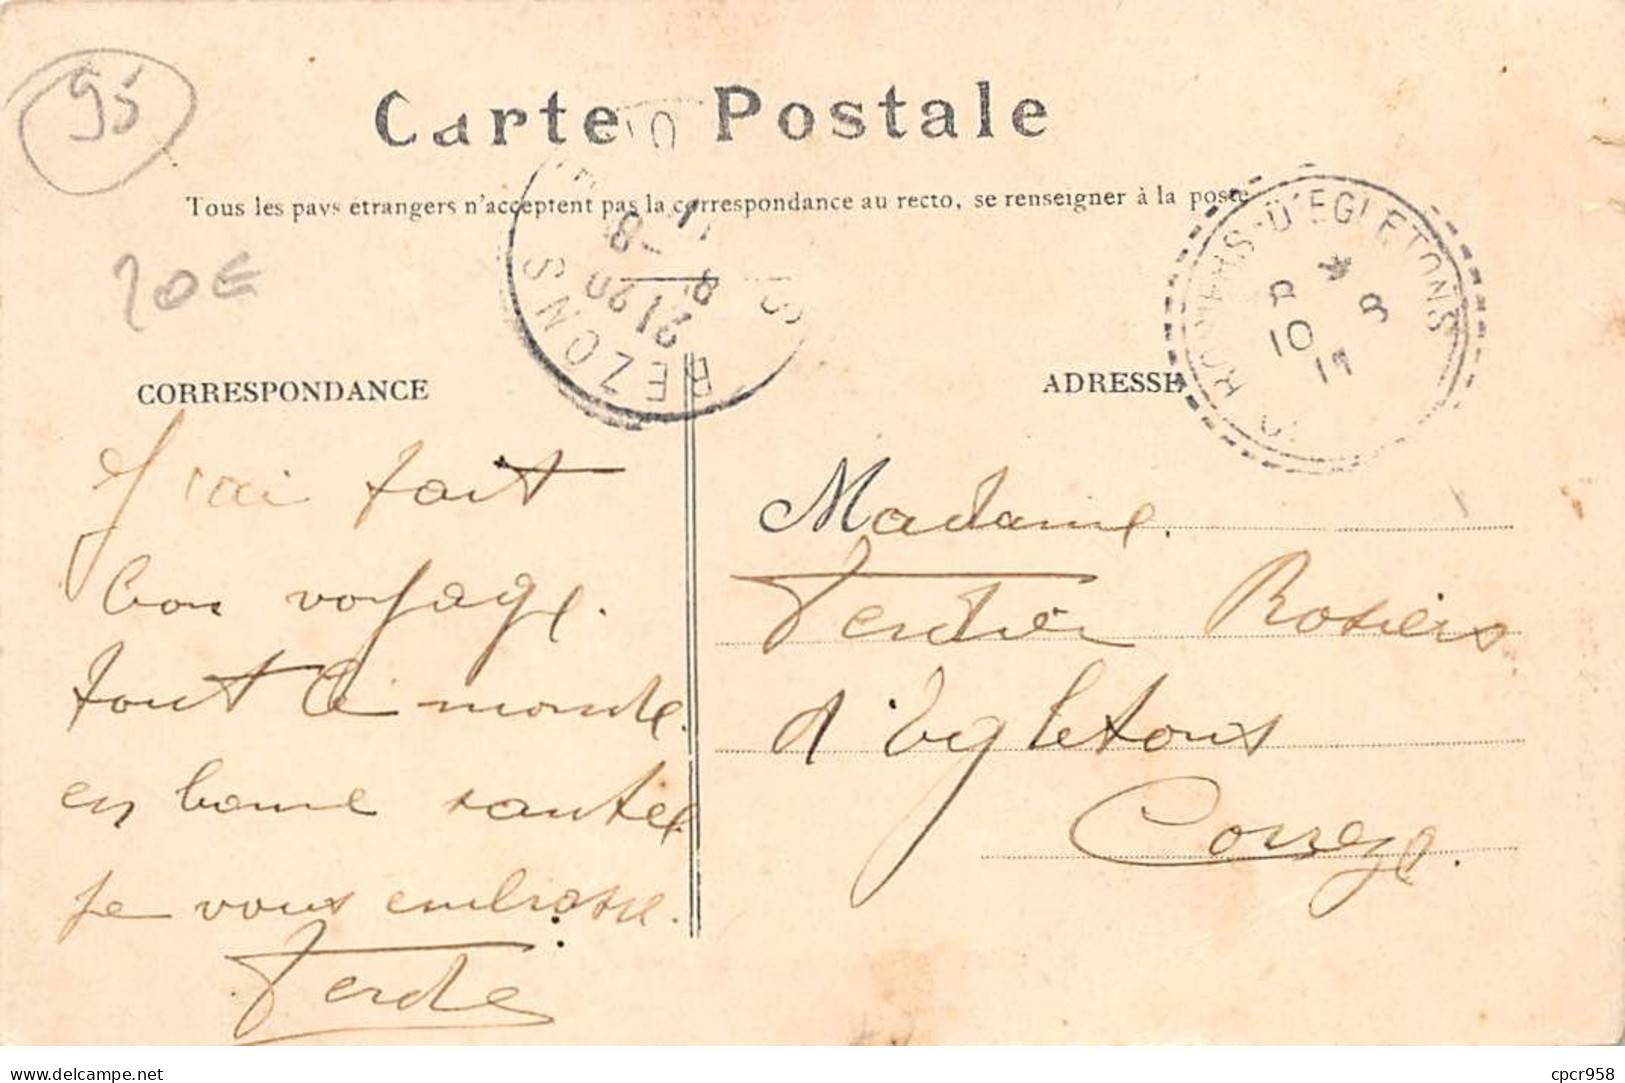 95
Carte Postale
Tous les pays étrangers n'acceptent pas la correspondance au recto, se renseigner à la poste
20€
BEZONS
21 20
8 -8
11
ROSIERS-D'EGLETONS
*
8
10 8
11
CORRESPONDANCE
ADRESSE
J'ai fait
bon voyage.
tout le monde
en bonne santée
je vous embrasse.
Verdie
Madame
Verdier Rosiers
d'Egletons
Correze.
delcampe.net
cpcr958